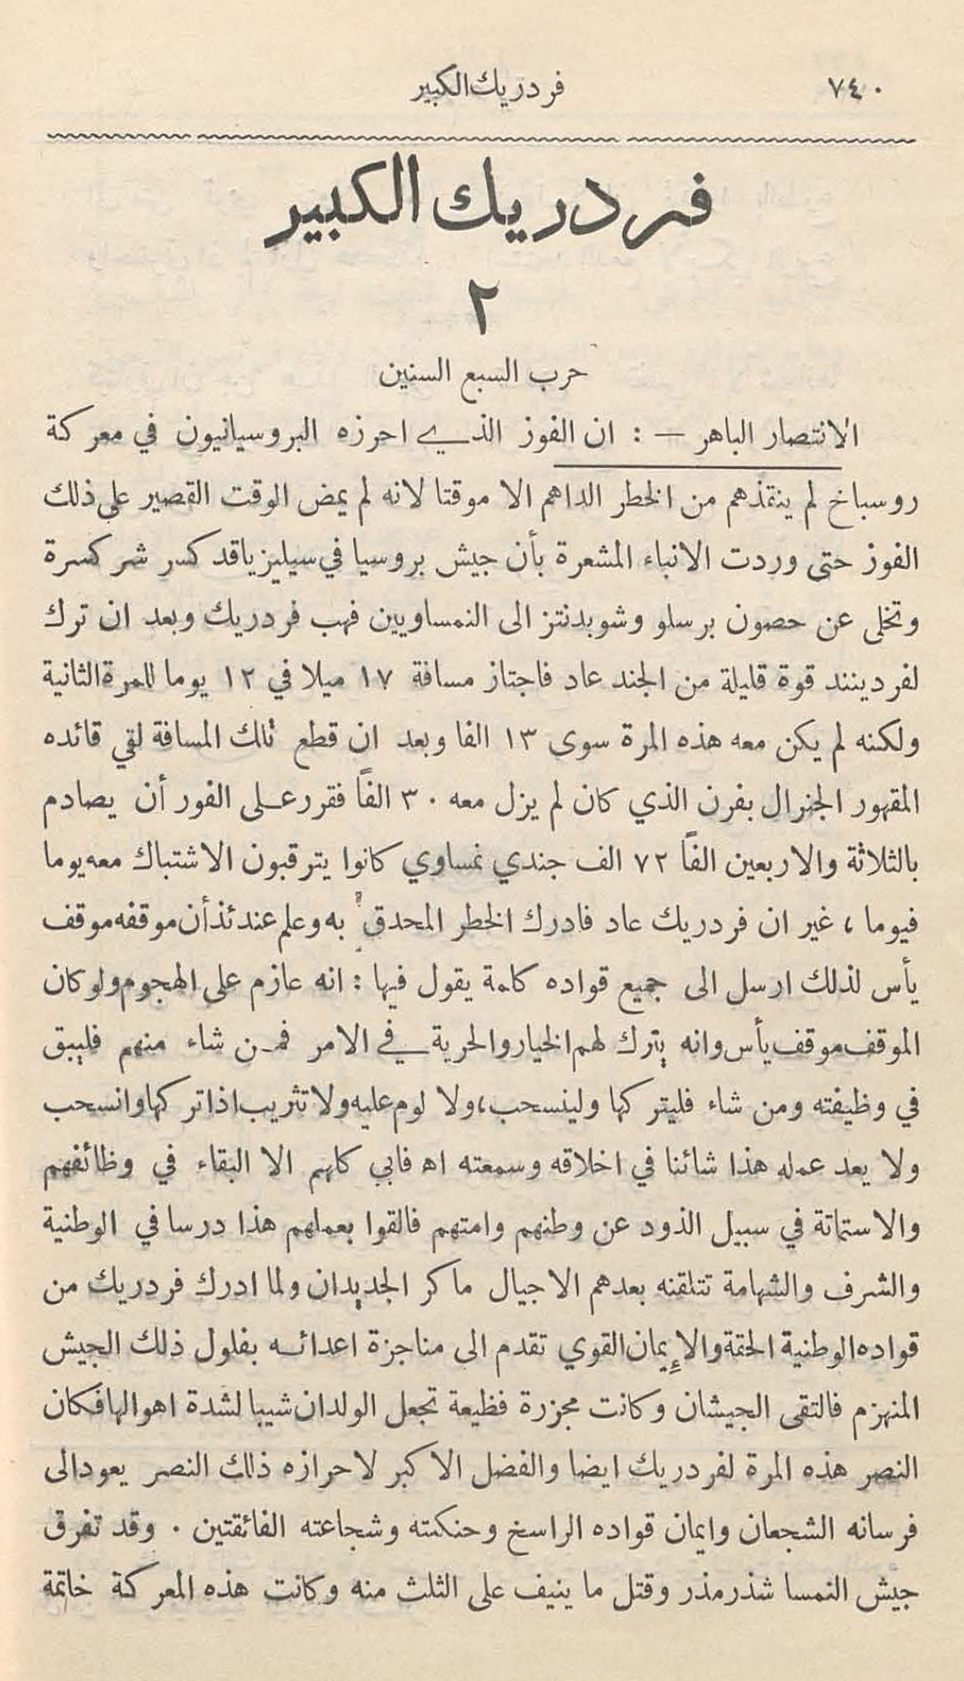 ٧٤٠
فردريك الكبير
فردريك الكبير
٢
حرب السبع السنين
الانتصار الباهر — : ان الفوز الذي احرزه البروسيانيون في معركة
روسباخ لم ينقذهم من الخطر الداهم الا موقتا لانه لم يمض الوقت القصير على ذلك
الفوز حتى وردت الانباء المشعرة بأن جيش بروسيا في سيليزيا قد كسر شر كسرة
وتخلى عن حصون برسلو وشوبدنتز الى النمساويين فهب فردريك وبعد ان ترك
لفردينند قوة قليلة من الجند عاد فاجتاز مسافة ١٧ ميلا في ١٢ يوما للمرة الثانية
ولكنه لم يكن معه هذه المرة سوى ١٣ الفا وبعد ان قطع تلك المسافة لقي قائده
المقهور الجنرال بفرن الذي كان لم يزل معه ٣٠ الفاً فقرر على الفور أن يصادم
بالثلاثة والاربعين الفاً ٧٢ الف جندي نمساوي كانوا يترقبون الاشتباك معه يوما
فيوما ، غير ان فردريك عاد فادرك الخطر المحدق به وعلم عندئذ أن موقفه موقف
يأس لذلك ارسل الى جميع قواده كلمة يقول فيها : انه عازم على الهجوم ولو كان
الموقف موقف يأس وانه يترك لهم الخيار والحرية في الامر فمن شاء منهم فليبق
في وظيفته ومن شاء فليتركها ولينسحب، ولا لوم عليه ولا تثريب اذا تركها وانسحب
ولا يعد عمله هذا شائنا في اخلاقه وسمعته اه فابي كلهم الا البقاء في وظائفهم
والاستماتة في سبيل الذود عن وطنهم وامتهم فالقوا بعملهم هذا درسا في الوطنية
والشرف والشهامة تتلقنه بعدهم الاجيال ما كر الجديدان ولما ادرك فردريك من
قواده الوطنية الحقة والإيمان القوي تقدم الى مناجزة اعدائه بفلول ذلك الجيش
المنهزم فالتقى الجيشان وكانت مجزرة فظيعة تجعل الولدان شيبا لشدة اهوالها فكان
النصر هذه المرة لفردريك ايضا والفضل الاكبر لاحرازه ذلك النصر يعود الى
فرسانه الشجعان وايمان قواده الراسخ وحنكته وشجاعته الفائقتين . وقد تفرق
جيش النمسا شذر مذر وقتل ما ينيف على الثلث منه وكانت هذه المعركة خاتمة